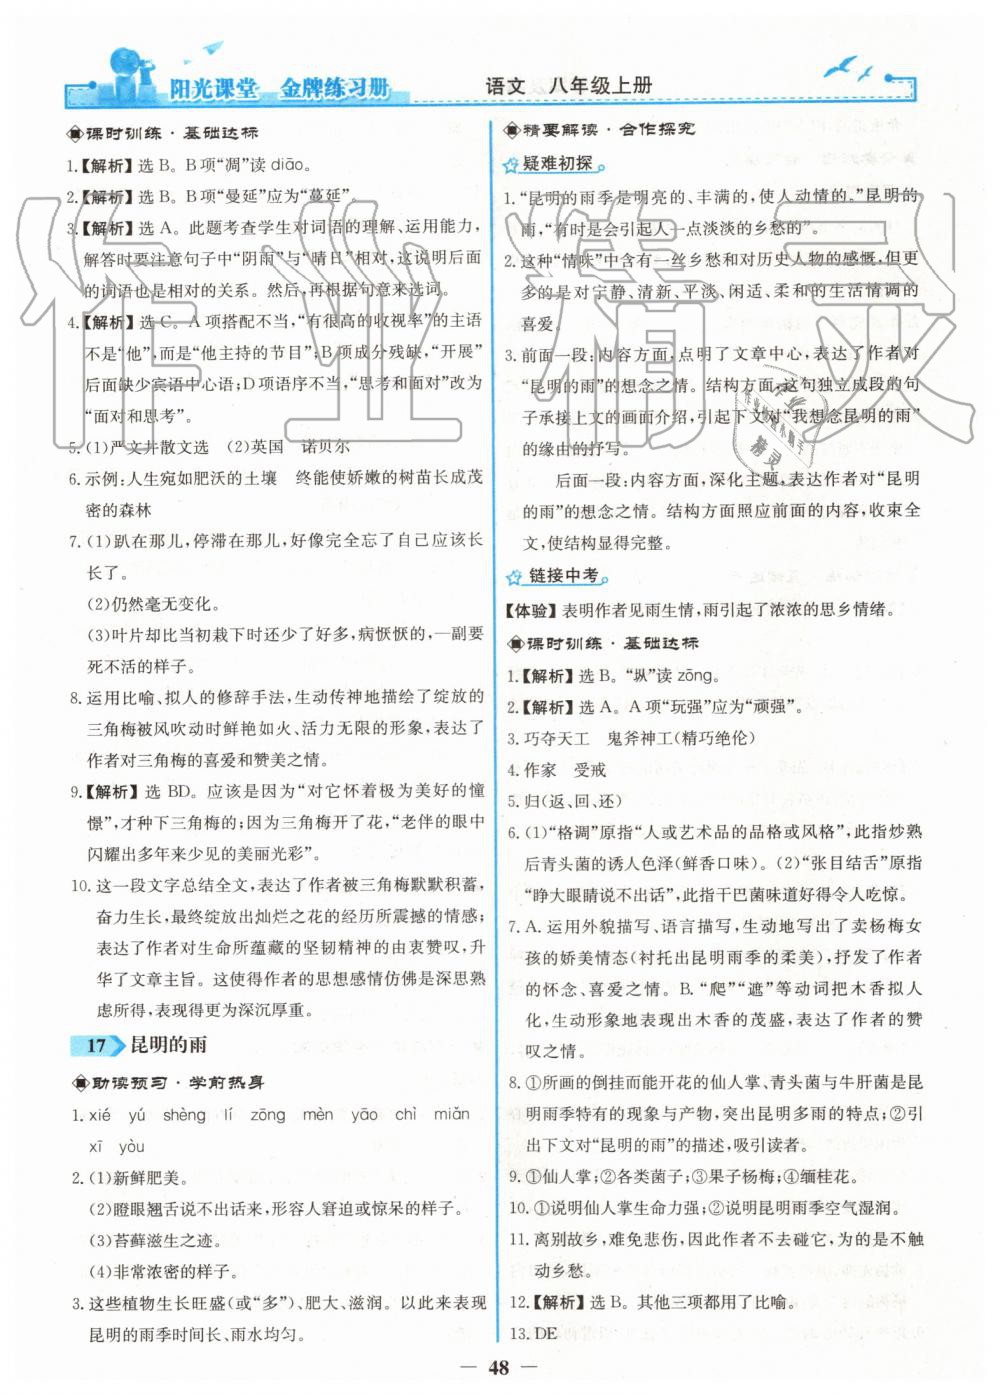 阳光课堂 金牌练习册
语文 八年级上册
课时训练·基础达标
1.【解析】选 B。B 项“凋”读 diāo。
2.【解析】选 B。B 项“曼延”应为“蔓延”。
3.【解析】选 A。此题考查学生对词语的理解、运用能力,
解答时要注意句子中“阴雨”与“晴日”相对,这说明前后
的词语也是相对的关系。然后,再根据句意来选词。
4.【解析】选 C。A 项搭配不当,“有很高的收视率”的主语
不是“他”,而是“他主持的节目”;B 项成分残缺,“开展”
后面缺少宾语中心语;D 项语序不当,“思考和面对”改为
“面对和思考”。
5. (1)严文井散文选 (2)英国 诺贝尔
6. 示例:人生宛如肥沃的土壤 终能使娇嫩的树苗长成茂
密的森林
7. (1)趴在那儿,停滞在那儿,好像完全忘了自己应该长
长了。
(2)仍然毫无变化。
(3)叶片却比当初栽下时还少了好多,病恹恹的,一副要
死不活的样子。
8. 运用比喻、拟人的修辞手法,生动传神地描绘了绽放的
三角梅被风吹动时鲜艳如火、活力无限的形象,表达了
作者对三角梅的喜爱和赞美之情。
9.【解析】选 BD。应该是因为“对它怀着极为美好的憧
憬”,才种下三角梅的;因为三角梅开了花,“老伴的眼中
闪耀出多年来少见的美丽光彩”。
10. 这一段文字总结全文,表达了作者被三角梅默默积蓄,
奋力生长,最终绽放出灿烂之花的经历所震撼的情感;
表达了作者对生命所蕴藏的坚韧精神的由衷赞叹,升
华了文章主旨。这使得作者的思想感情仿佛是深思熟
虑所得,表现得更为深沉厚重。
17 昆明的雨
助读预习·学前热身
1. xié yú shèng lí zōng mèn yāo chì miǎn
xī yòu
2. (1)新鲜肥美。
(2)瞪眼翘舌说不出话来,形容人窘迫或惊呆的样子。
(3)苔藓滋生之迹。
(4)非常浓密的样子。
3. 这些植物生长旺盛(或“多”)、肥大、滋润。以此来表现
昆明的雨季时间长、雨水均匀。
精要解读·合作探究
疑难初探
1. “昆明的雨季是明亮的、丰满的,使人动情的。”昆明的
雨,“有时是会引起人一点淡淡的乡愁的”。
2. 这种“情味”中含有一丝乡愁和对历史人物的感慨,但更
多的是对宁静、清新、平淡、闲适、柔和的生活情调的
喜爱。
3. 前面一段:内容方面,点明了文章中心,表达了作者对
“昆明的雨”的想念之情。结构方面,这句独立成段的句
子承接上文的画面介绍,引起下文对“我想念昆明的雨”
的缘由的抒写。
后面一段:内容方面,深化主题,表达作者对“昆明
的雨”的想念之情。结构方面照应前面的内容,收束全
文,使结构显得完整。
链接中考
【体验】表明作者见雨生情,雨引起了浓浓的思乡情绪。
课时训练·基础达标
1.【解析】选 B。“枞”读 zōng。
2.【解析】选 A。A 项“玩强”应为“顽强”。
3. 巧夺天工 鬼斧神工(精巧绝伦)
4. 作家 受戒
5. 归(返、回、还)
6. (1)“格调”原指“人或艺术品的品格或风格”,此指炒熟
后青头菌的诱人色泽(鲜香口味)。(2)“张目结舌”原指
“睁大眼睛说不出话”,此指干巴菌味道好得令人吃惊。
7. A. 运用外貌描写、语言描写,生动地写出了卖杨梅女
孩的娇美情态(衬托出昆明雨季的柔美),抒发了作者
的怀念、喜爱之情。B. “爬”“遮”等动词把木香拟人
化,生动形象地表现出木香的茂盛,表达了作者的赞
叹之情。
8. ①所画的倒挂而能开花的仙人掌、青头菌与牛肝菌是昆
明雨季特有的现象与产物,突出昆明多雨的特点;②引
出下文对“昆明的雨”的描述,吸引读者。
9. ①仙人掌;②各类菌子;③果子杨梅;④缅桂花。
10. ①说明仙人掌生命力强;②说明昆明雨季空气湿润。
11. 离别故乡,难免悲伤,因此作者不去碰它,为的是不触
动乡愁。
12.【解析】选 B。其他三项都用了比喻。
13. DE
— 48 —
作业精灵
精灵